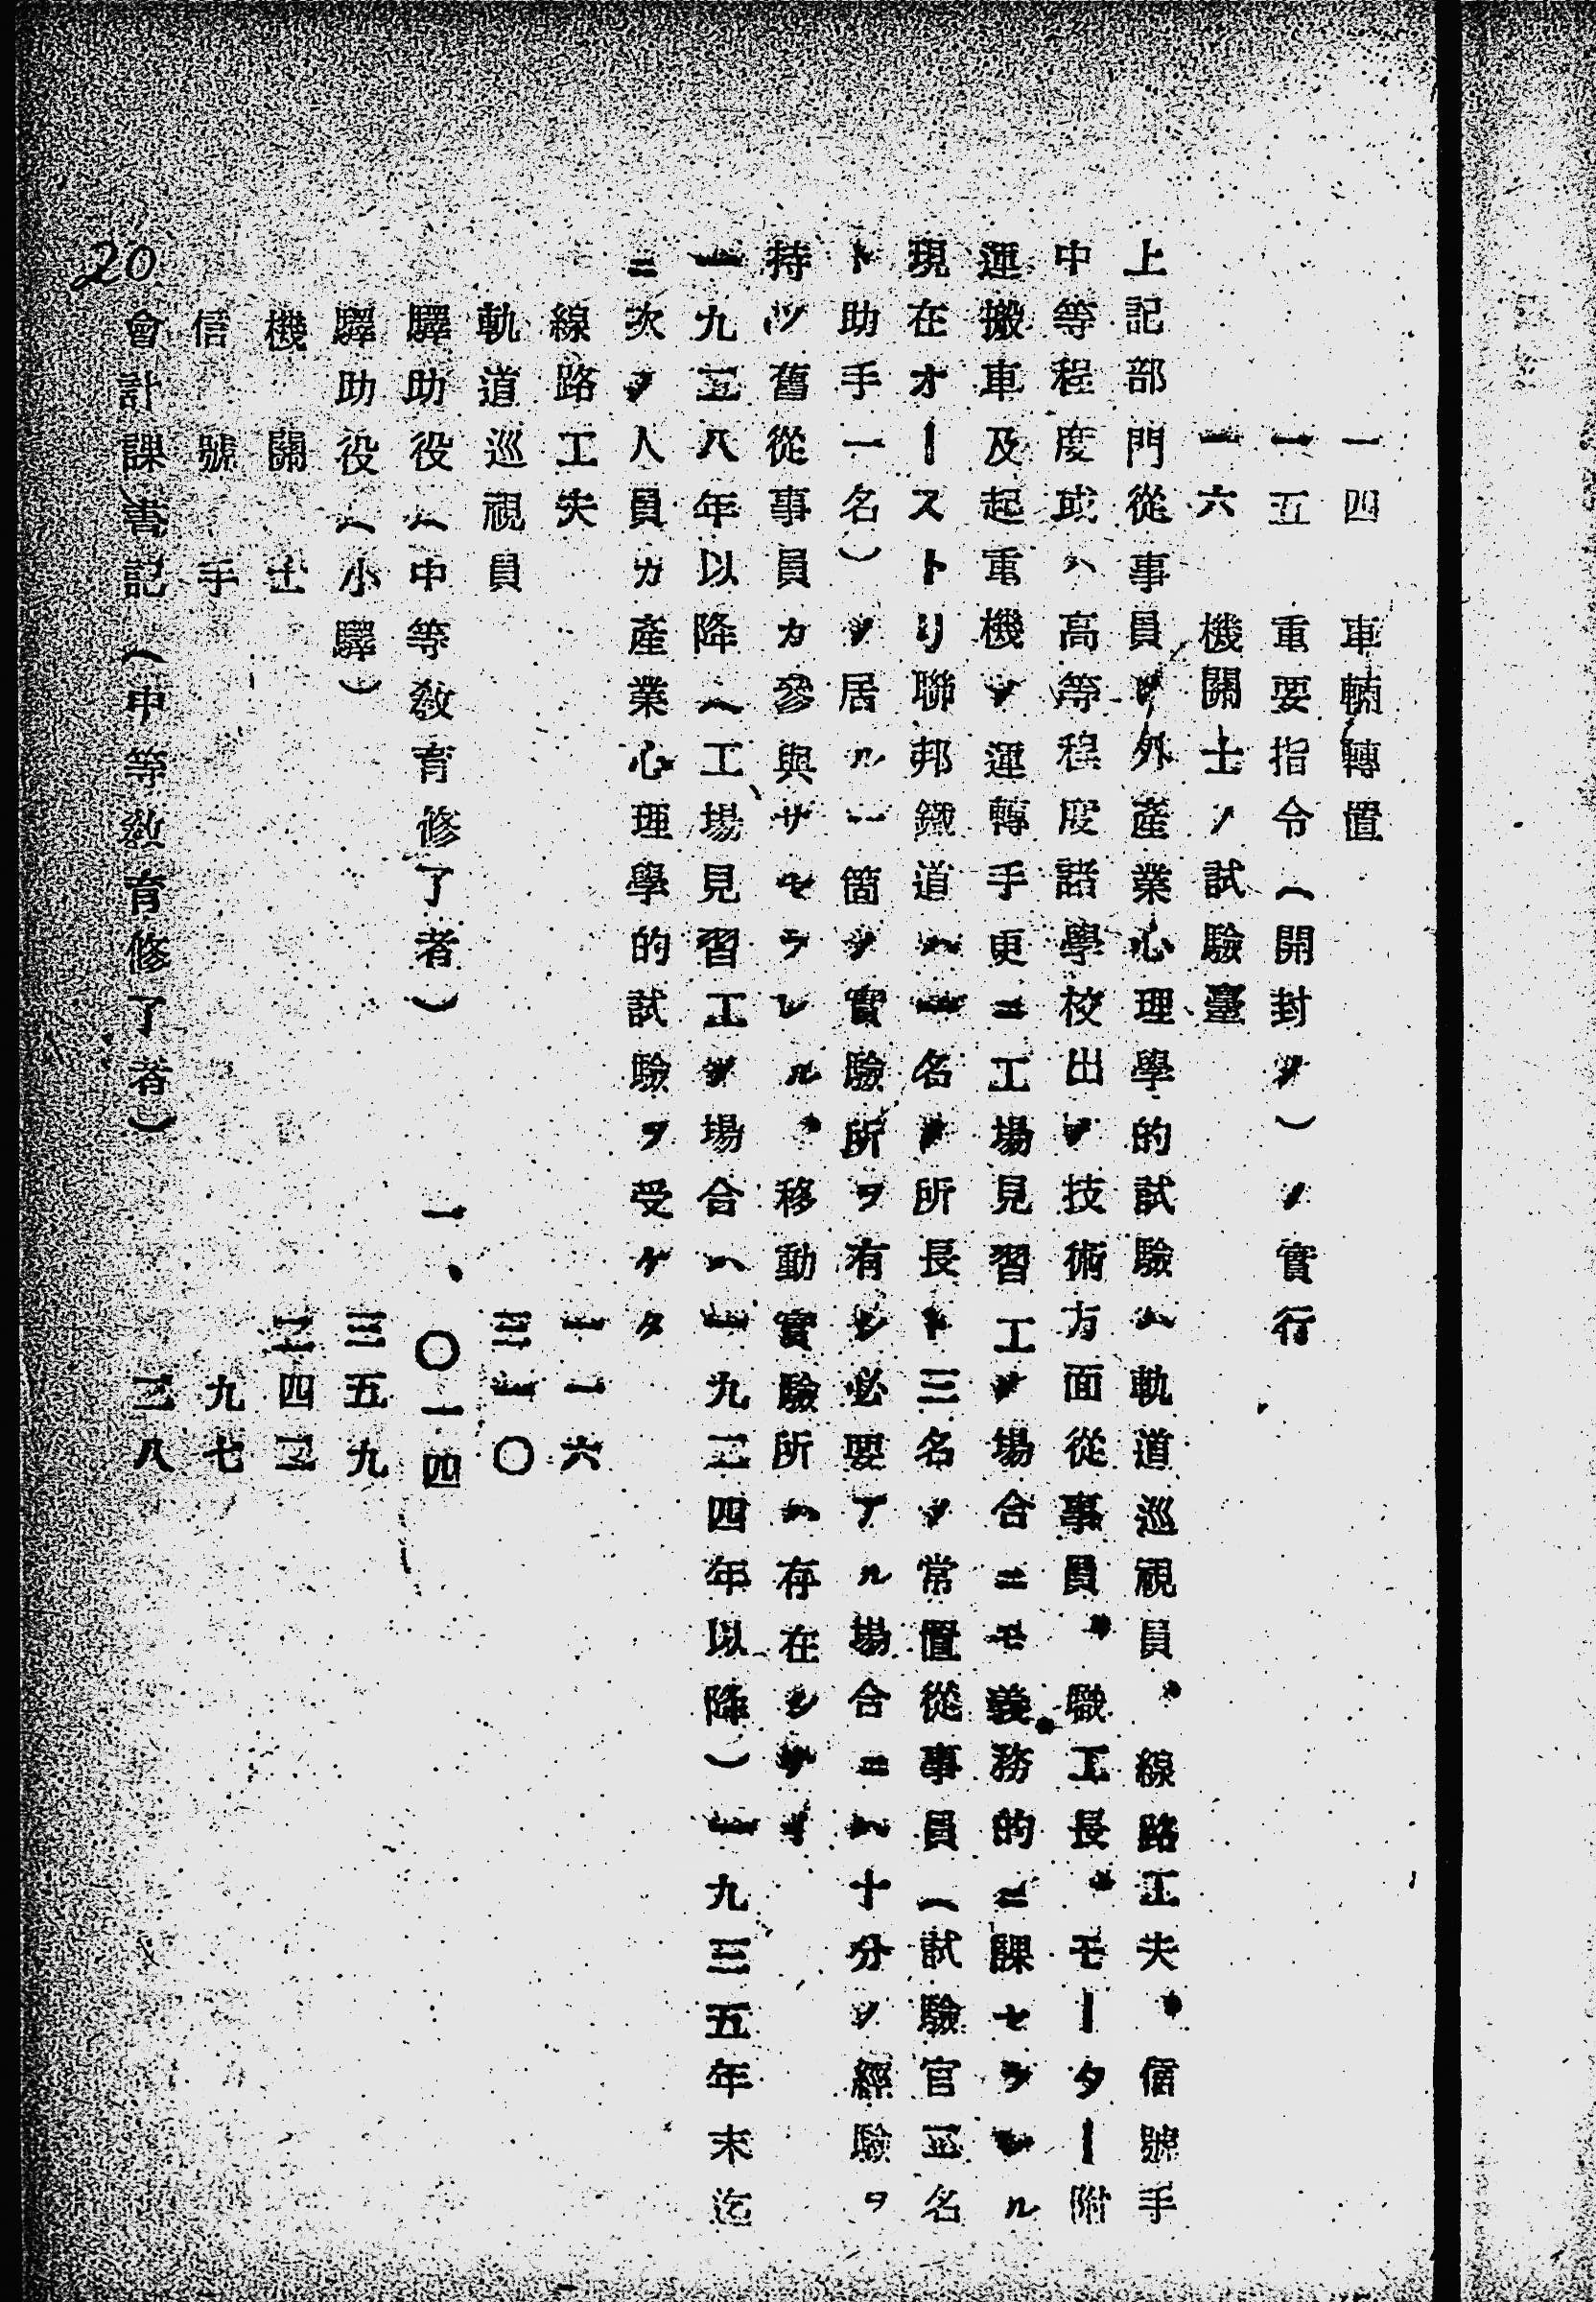 一四 車輛轉置
一五 重要指令(開封ノ)ノ實行
一六 機關士ノ試驗臺
上記部門從事員ノ外產業心理學的試驗ハ軌道巡視員、線路工夫、信號手
中等程度或ハ高等程度諸學校出ノ技術方面從事員、職工長、モーター附
運搬車及起重機ノ運轉手更ニ工場見習工ノ場合ニモ義務的ニ課セラレル
現在オーストリ聯邦鐵道ハ一名ノ所長ト三名ノ常置從事員(試驗官五名
ト助手一名)ノ居ル一箇ノ實驗所ヲ有シ必要アル場合ニハ十分ノ經驗ヲ
持ツ舊從事員カ參與サセラレル、移動實驗所ハ存在シサイ
一九五八年以降(工場見習工ノ場合ハ一九二四年以降)一九三五年末迄
ニ次ノ人員カ產業心理學的試驗ヲ受ケタ
線路工夫 一一六
軌道巡視員 三一〇
驛助役(中等敎育修了者) 一、〇一四
驛助役(小驛) 三五九
機關士 二四五
信號手 九七
會計課書記(中等敎育修了者) 三八
20